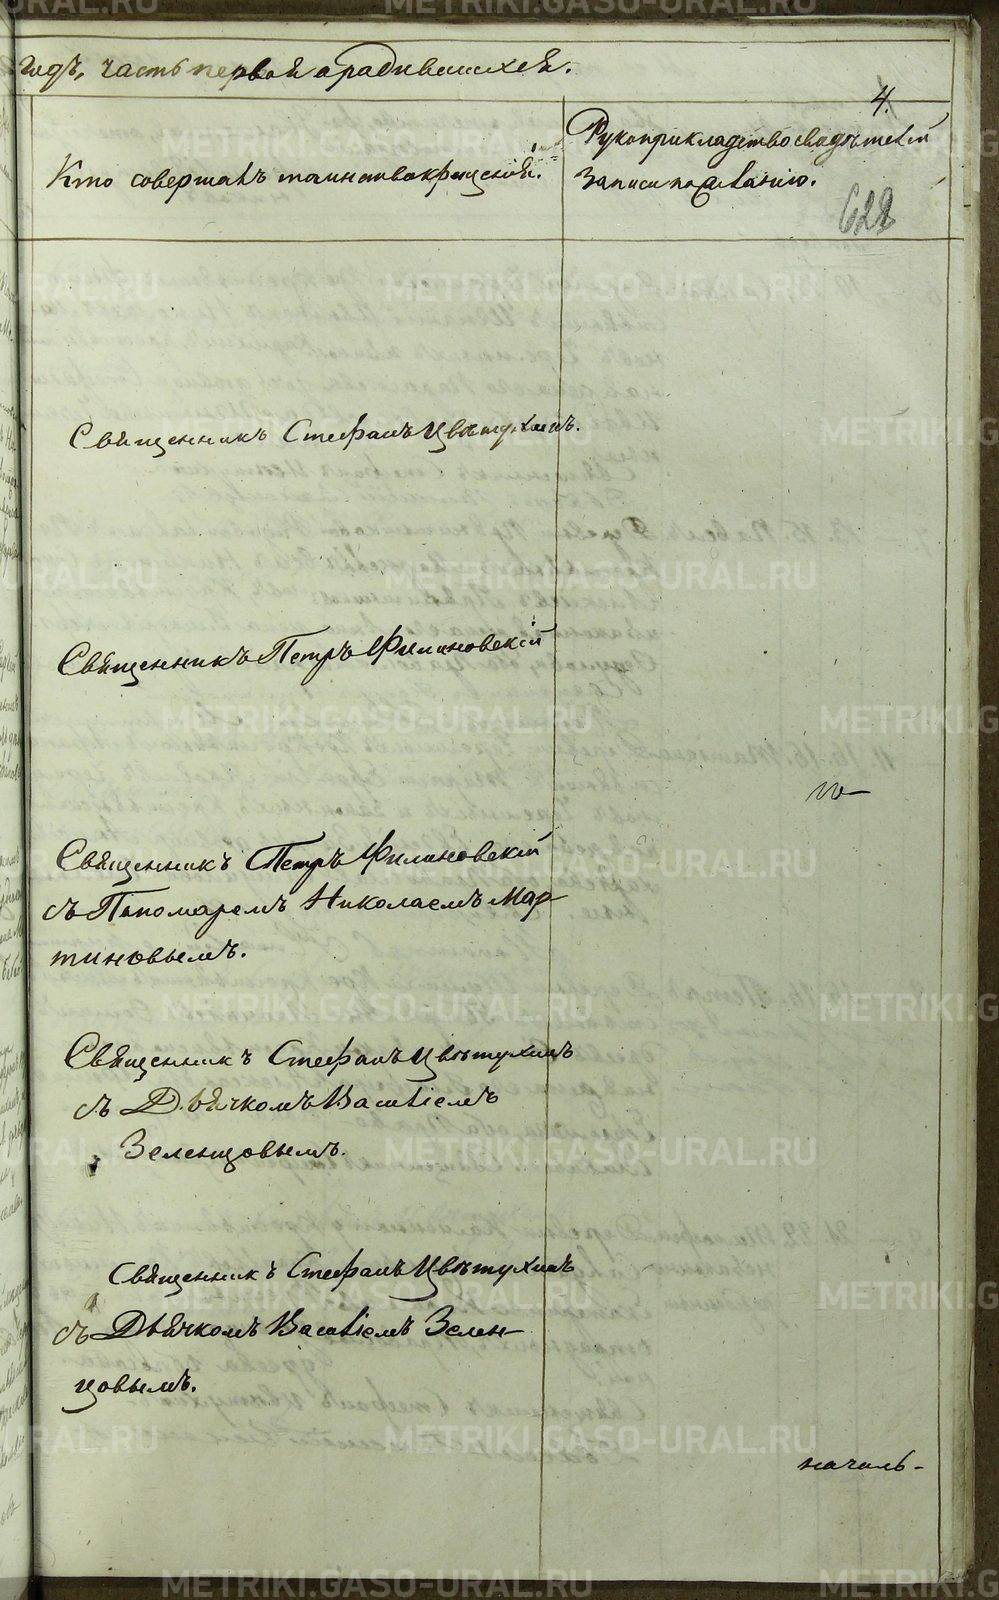 годъ, часть первой о родившихся.
4.
Кто совершалъ таинство крещенія.
Рукоприкладство свидѣтелей
записи по желанію.
622
Священникъ Стефанъ Цвѣтухинъ.
Священникъ Петръ Филиновскій
но
Священникъ Петръ Филиновскій
съ Пономаремъ Николаемъ Мар
тиновымъ.
Священникъ Стефанъ Цвѣтухинъ
съ Дьячкомъ Василіемъ
Зеленцовымъ.
Священникъ Стефанъ Цвѣтухинъ
съ Дьячкомъ Василіемъ Зелен-
цовымъ.
началь-
METRIKI.GASO-URAL.RU